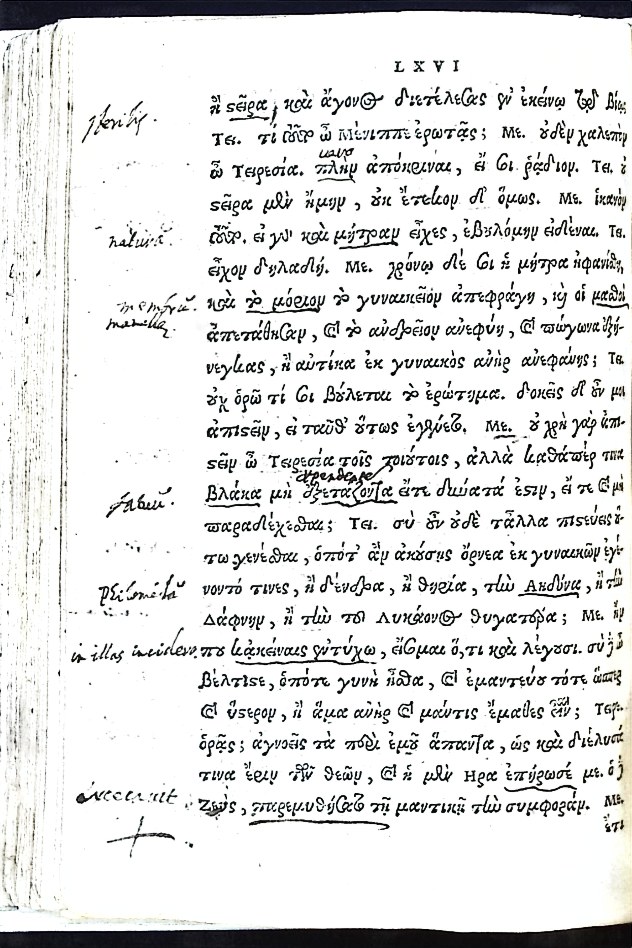 LXVI
sterilis. ἢ στεῖρα, καὶ ἄγονος διετέλεσας ἐν ἐκείνῳ τῷ βίῳ
Τει. τί τοῦτο ὦ Μένιππε ἐρωτᾷς; Με. οὐδὲν χαλεπὸν
ὦ Τειρεσία. πλὴν ἀπόκριναι, εἴ σοι ῥᾴδιον. Τει. οὐ
στεῖρα μὲν ἤμην, οὐκ ἔτεκον δ' ὅμως. Με. ἱκανὸν
naturā. τοῦτο. εἰ γὰρ καὶ μήτραν εἶχες, ἐβουλόμην εἰδέναι. Τει.
εἶχον δηλαδή. Με. χρόνῳ δέ σοι ἡ μήτρα ἠφανίσθη,
καὶ τὸ μόριον τὸ γυναικεῖον ἀπεφράγη, καὶ οἱ μασθοὶ
ἀπεστάθησαν, καὶ τὸ ἀνδρεῖον ἀνεφύη, καὶ πώγωνα ἐξή-
νεγκας, ἢ αὐτίκα ἐκ γυναικὸς ἀνὴρ ἀνεφάνης; Τει.
οὐχ ὁρῶ τί σοι βούλεται τὸ ἐρώτημα. δοκεῖς δ' οὖν μοι
ἀπιστεῖν, εἰ ταῦθ' οὕτως ἐγένετο. Με. οὐ χρὴ γὰρ ἀπι-
στεῖν ὦ Τειρεσία τοῖς τοιούτοις, ἀλλὰ καθάπερ τινα
fatuū. βλάκα μὴ ἐξετάζοντα εἴτε δυνατά ἐστιν, εἴ τε καὶ μὴ
παραδέχεσθαι; Τει. σὺ οὖν οὐδὲ τἆλλα πιστεύεις οὕ-
τω γενέσθαι, ὁπότ' ἂν ἀκούσῃς ὄρνεα ἐκ γυναικῶν ἐγέ-
philomelā νοντό τινες, ἢ δένδρα, ἢ θηρία, τὴν Ἀηδόνα, ἢ τὴν
Δάφνην, ἢ τὴν τοῦ Λυκάονος θυγατέρα; Με. ἤν
που κἀκείναις ἐντύχω, εἴσομαι ὅ,τι καὶ λέγουσι. σὺ δὲ ὦ
βέλτιστε, ὁπότε γυνὴ ἦσθα, καὶ ἐμαντεύου τότε ὥσπερ
καὶ ὕστερον, ἢ ἅμα ἀνὴρ καὶ μάντις ἔμαθες εἶναι; Τειρε.
ὁρᾷς; ἀγνοεῖς τὰ περὶ ἐμοῦ ἅπαντα, ὡς καὶ διέλυσά
τινα ἔριν τῶν θεῶν, καὶ ἡ μὲν Ηρα ἐπήρωσέ με. ὁ δὲ
excecauit Ζεὺς, παρεμυθήσατο τῇ μαντικῇ τὴν συμφοράν. Με.
ἔτι